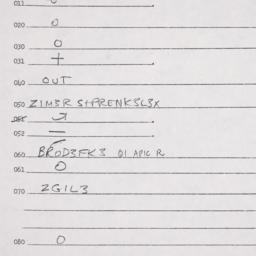 011
020 0
030 0
031 +
040 OUT
050 Z1M3R S+PRENK3L3X
052 —
060 BROD3FK3 01 APIC R
061 0
070 ZGIL3
080 0